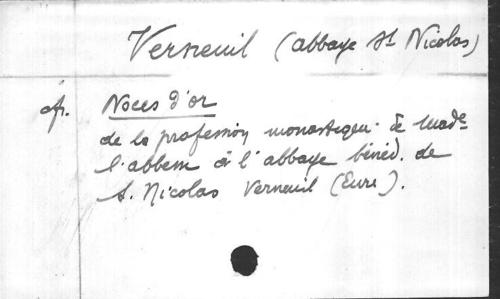 Verneuil (abbaye St Nicolas)
cfr. Noces d'or
de la profession monastique de Made
l'abbesse à l'abbaye bénéd. de
S. Nicolas Verneuil (Eure).